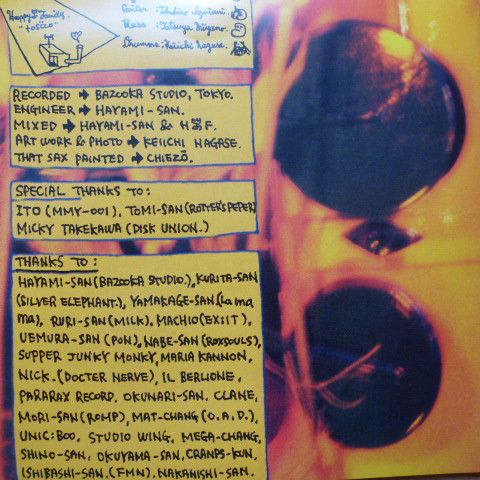 Happy Family
RECORDED ➡ BAZOOKA STUDIO, TOKYO.
ENGINEER ➡ HAYAMI-SAN.
MIXED ➡ HAYAMI-SAN & H F.
ART WORK & PHOTO ➡ KEIICHI NAGASE.
THAT SAX PAINTED ➡ CHIEZŌ.
SPECIAL THANKS TO:
ITO (MMY-001), TOMI-SAN (ROTTER'S PEPER)
MICKY TAKEKAWA (DISK UNION.)
THANKS TO:
HAYAMI-SAN (BAZOOKA STUDIO.), KURITA-SAN
(SILVER ELEPHANT.), YAMAKAGE-SAN (La ma
ma), RURI-SAN (MILK). MACHIO (EX:IT),
UEMURA-SAN (PON), NABE-SAN (ROXSOULS),
SUPPER JUNKY MONKY, MARIA KANNON,
NICK. (DOCTER NERVE), IL BERLIONE,
PARARAX RECORD, OKUNARI-SAN, CLANE,
MORI-SAN (ROMP), MAT-CHANG (O.A.D.),
UNIC:BOO, STUDIO WING, MEGA-CHANG,
SHINO-SAN, OKUYAMA-SAN, CRANPS-KUN,
ISHIBASHI-SAN, (FMN). NAKANISHI-SAN.